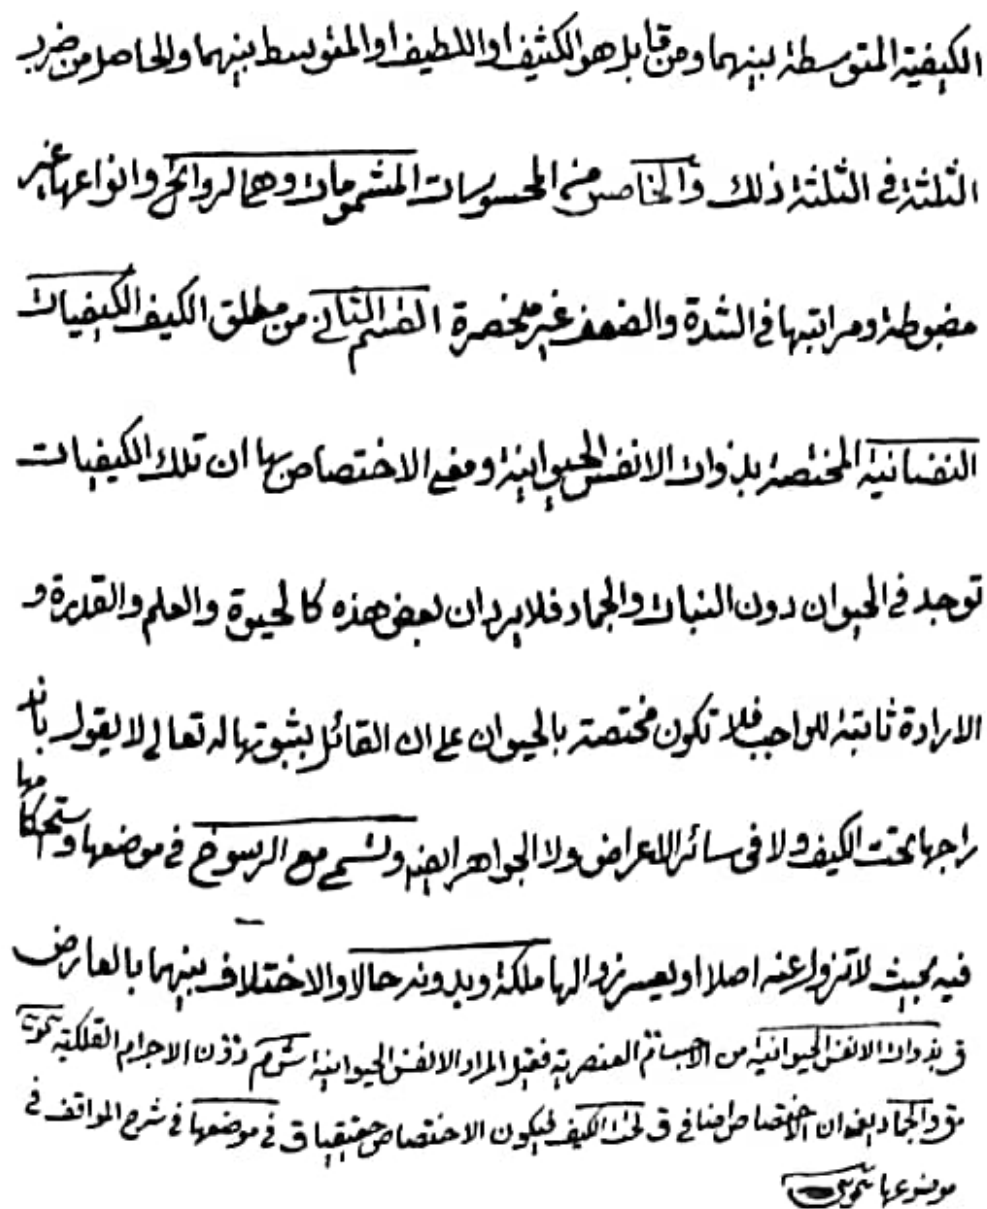 الكيفية المتوسطة بينهما ومن قابل هو الكثيف او اللطيف او المتوسط بينهما والحاصل من ضرب
الثلثة في الثلثة ذلك والخامس من المحسوسات المشمومات وهي الروائح وانواعها غير
مضبوطة ومراتبها في الشدة والضعف غير منحصرة القسم الثاني من مطلق الكيف الكيفيات
النفسانية المختصة بذوات الانفس الحيوانية ومعنى الاختصاص بها ان تلك الكيفيات
توجد في الحيوان دون النبات والجماد فلا يرد ان بعض هذه كالحيوة والعلم والقدرة و
الارادة ثابتة للواجب فلا تكون مختصة بالحيوان على ان القائل بثبوتها له تعالى لا يقول باند
راجها تحت الكيف ولا في سائر الاعراض ولا الجواهر ايضا وتسمى مع الرسوخ في موضعها واستحكامها
فيه بحيث لا تزول عنه اصلا او يعسر زوالها ملكة وبدونه حالا والاختلاف بينهما بالعارض
ق بذوات الانفس الحيوانية من الاجسام العنصرية فقيل المراد الانفس الحيوانية دون الاجرام الفلكية
ق والجماد يعني ان الاختصاص اضافي ق تحت الكيف فيكون الاختصاص حقيقيا ق في موضعها في شرح المواقف في
موضوعها